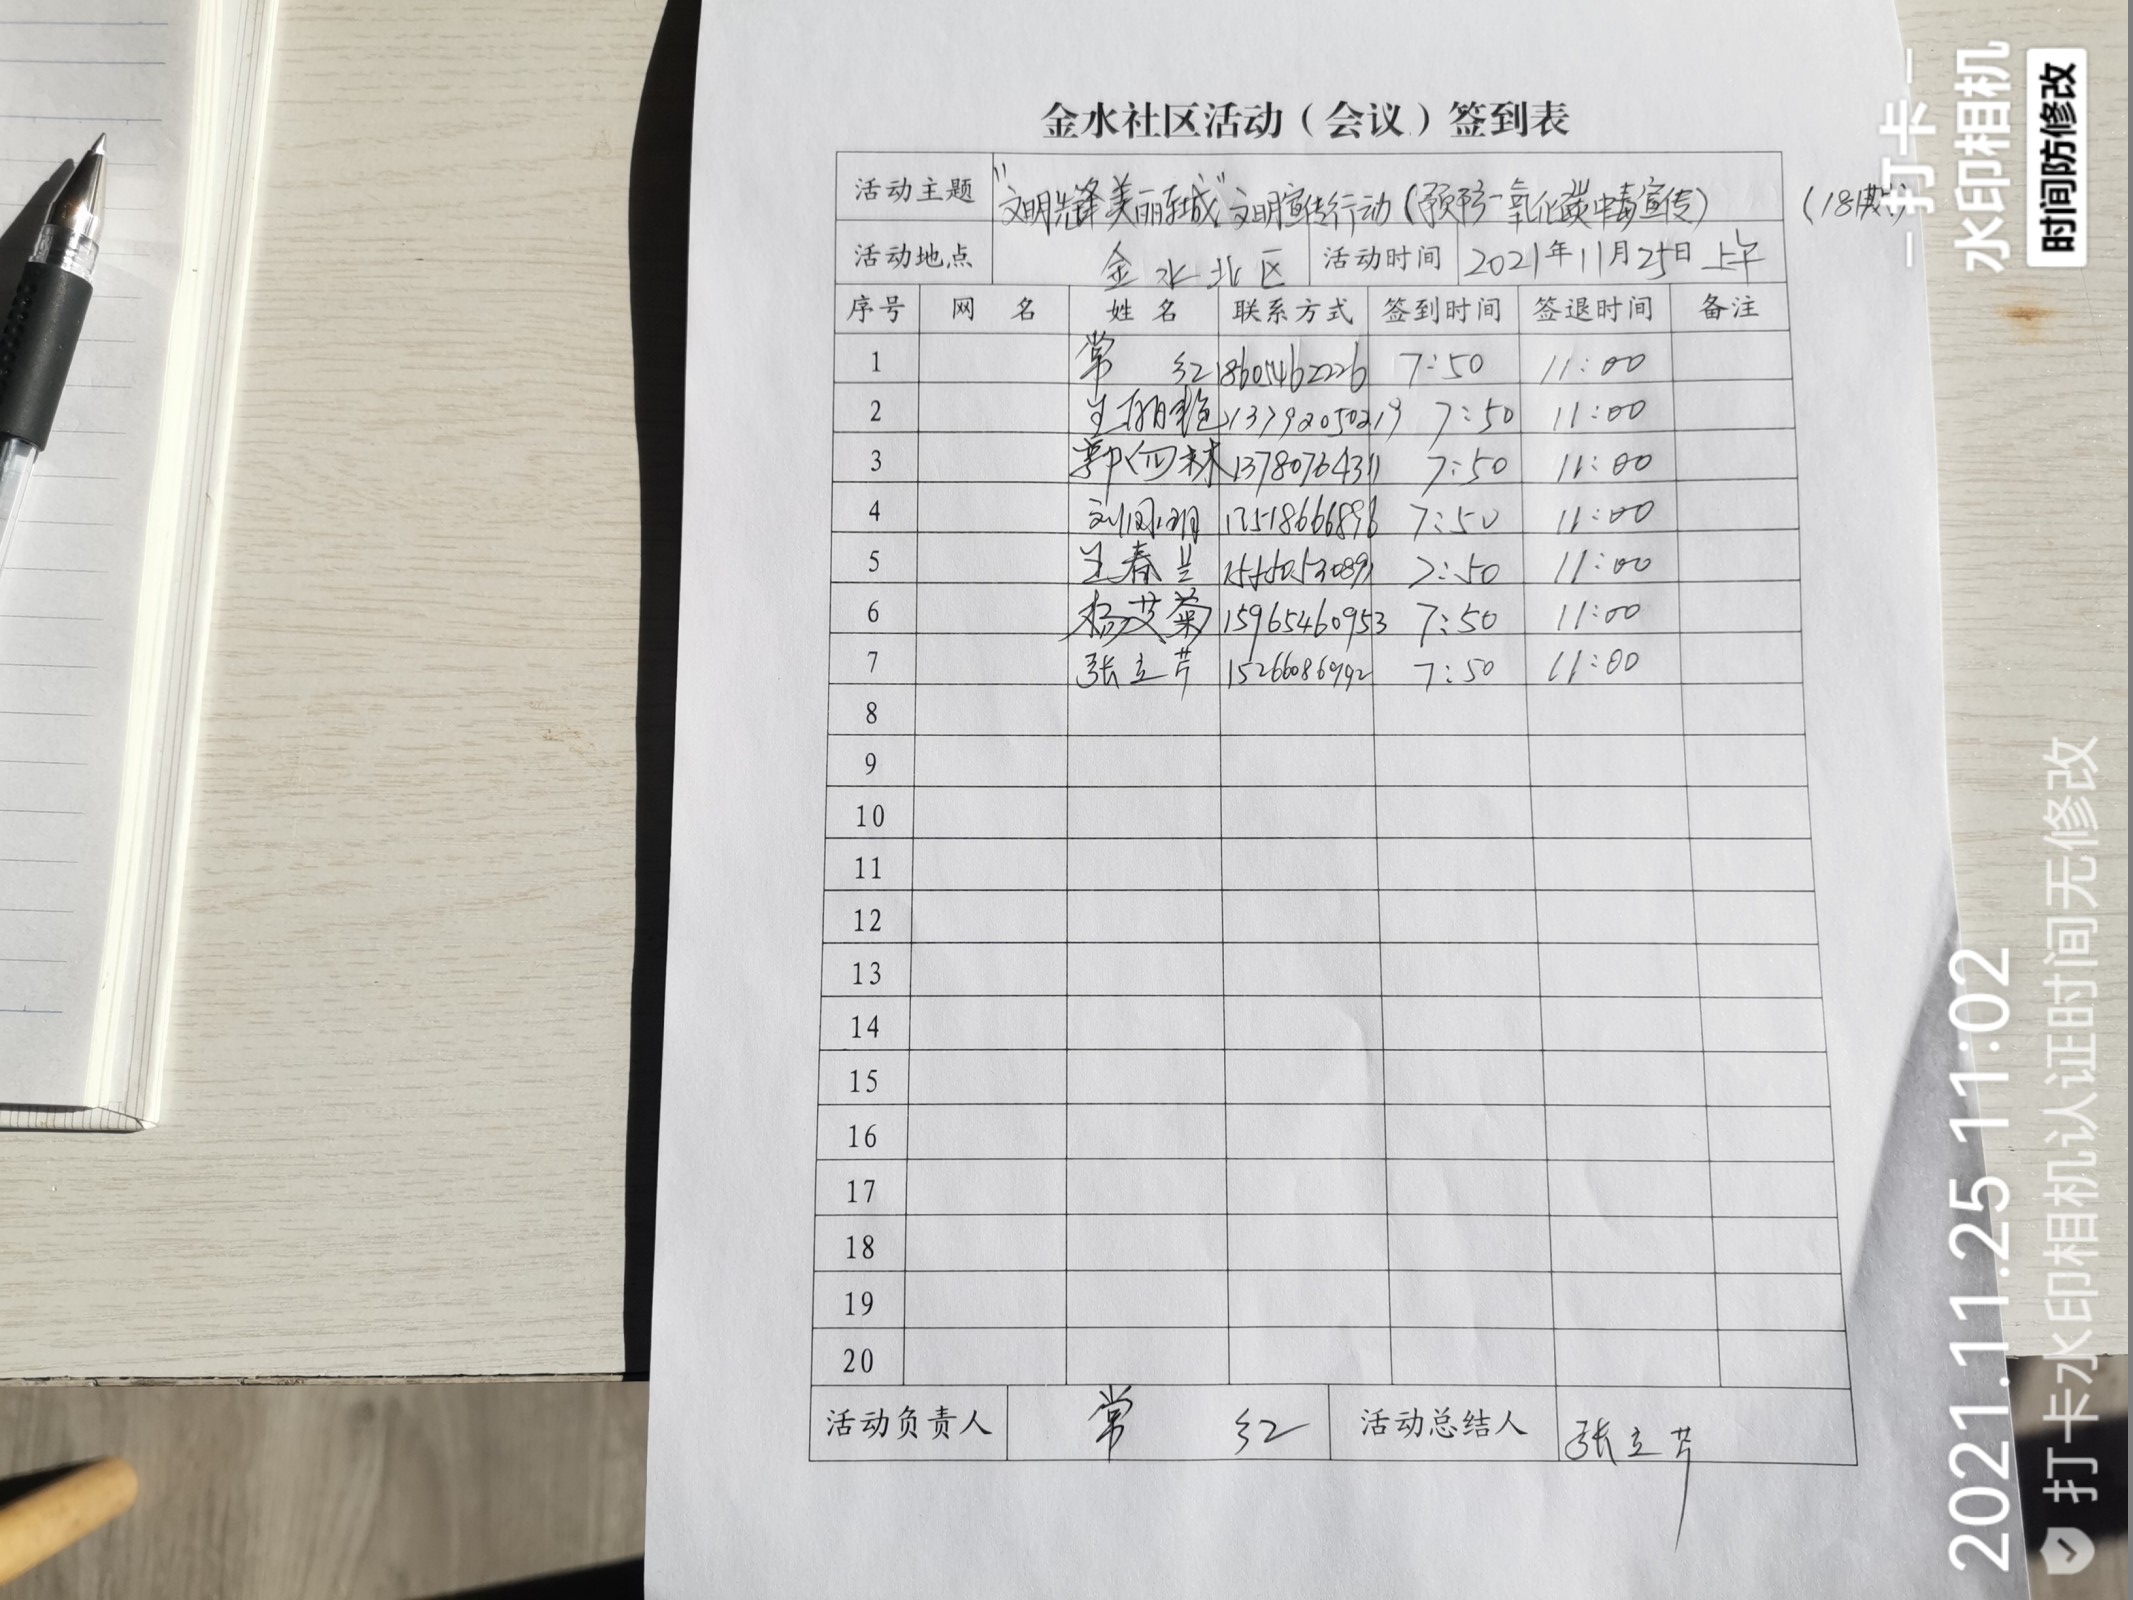 金水社区活动（会议）签到表
活动主题 "文明先锋美丽东城"文明宣传行动（预防一氧化碳中毒宣传） （18期）
活动地点 金水北区 活动时间 2021年11月25日 上午
序号 网 名 姓 名 联系方式 签到时间 签退时间 备注
1 常 红 18605462226 7:50 11:00
2 13792050219 7:50 11:00
3 13780764311 7:50 11:00
4 7:50 11:00
5 王春兰 7:50 11:00
6 杨艾菊 15965460953 7:50 11:00
7 张立芹 7:50 11:00
8
9
10
11
12
13
14
15
16
17
18
19
20
活动负责人 常 红 活动总结人 张立芹
打卡
水印相机
时间防修改
2021.11.25 11:02
打卡水印相机认证时间无修改